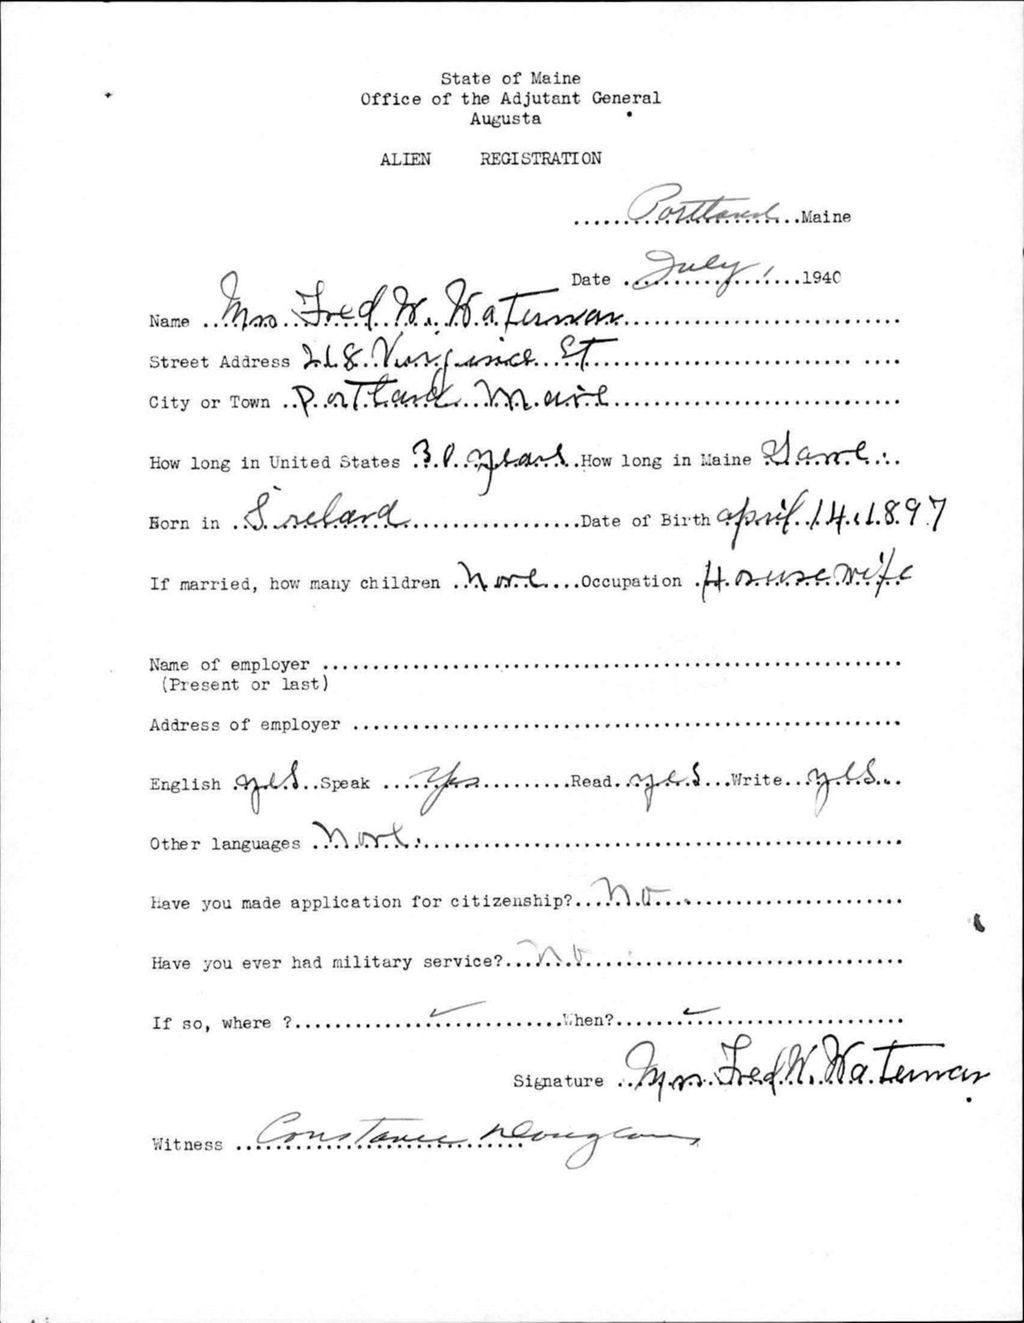 State of Maine
Office of the Adjutant General
Augusta
ALIEN REGISTRATION
Portland Maine
Date July 1 1940
Name Mrs Fred W. Waterman
Street Address 218 Virginia St
City or Town Portland Maine
How long in United States 30 years How long in Maine Same
Born in Ireland Date of Birth april 14, 1897
If married, how many children None Occupation Housewife
Name of employer
(Present or last)
Address of employer
English yes Speak Yes Read yes Write yes
Other languages None
Have you made application for citizenship? No
Have you ever had military service? No
If so, where ? When?
Signature Mrs. Fred W. Waterman
Witness Constance Douglass